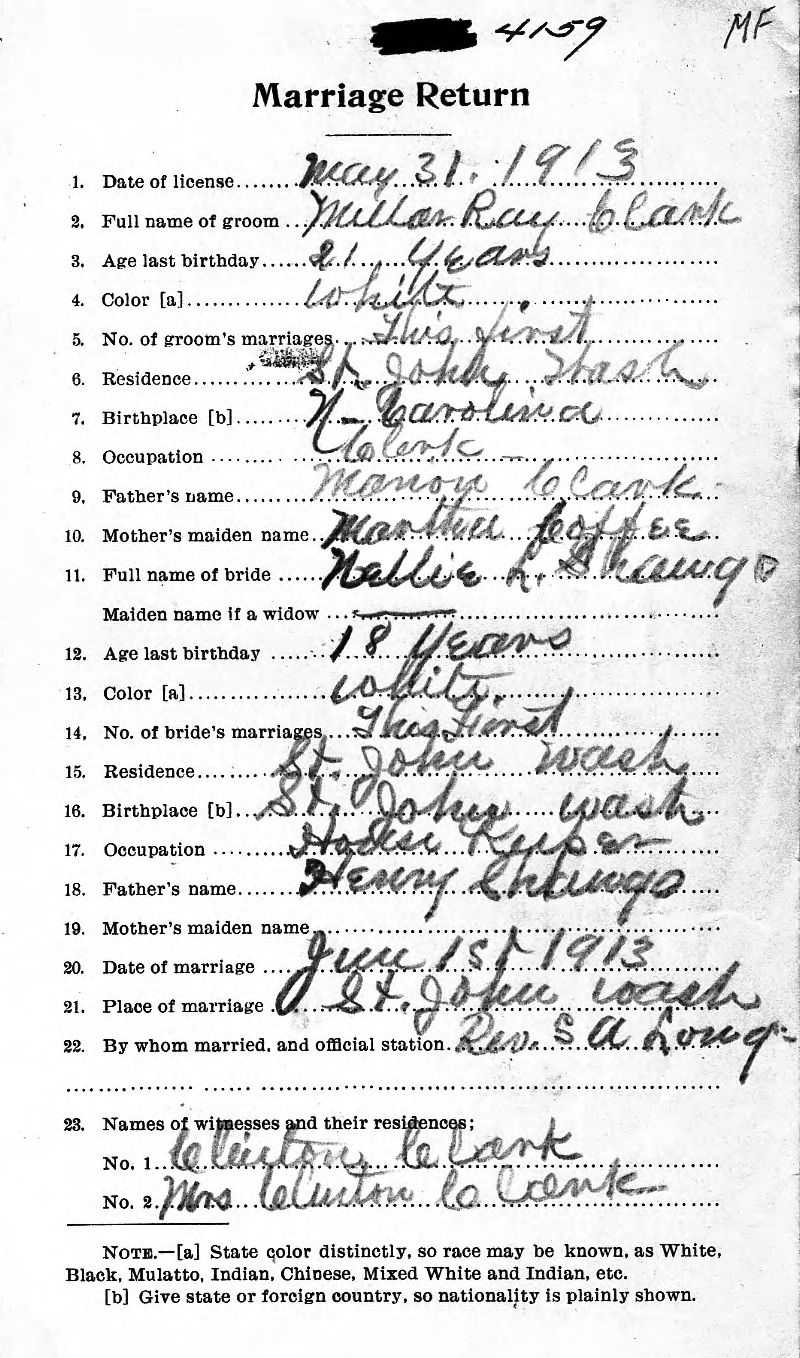 4159
MF
Marriage Return
1. Date of license May 31. 1913
2. Full name of groom Millar Ray Clark
3. Age last birthday 21 Years
4. Color [a] White
5. No. of groom's marriages This first
6. Residence St. John, Wash
7. Birthplace [b] N- Carolina
8. Occupation Clerk -
9. Father's name Marion Clark
10. Mother's maiden name Martha Coffee
11. Full name of bride Nellie L. Shawgo
Maiden name if a widow
12. Age last birthday 18 Years
13. Color [a] White.
14. No. of bride's marriages This First
15. Residence St. John Wash
16. Birthplace [b] St. John Wash
17. Occupation House Keeper
18. Father's name Henry Shawgo
19. Mother's maiden name
20. Date of marriage June 1st 1913
21. Place of marriage St. John Wash
22. By whom married, and official station Rev. S A Long
23. Names of witnesses and their residences;
No. 1 Clinton Clark
No. 2. Mrs Clinton Clark
NOTE.—[a] State color distinctly, so race may be known, as White,
Black, Mulatto, Indian, Chinese, Mixed White and Indian, etc.
[b] Give state or foreign country, so nationality is plainly shown.